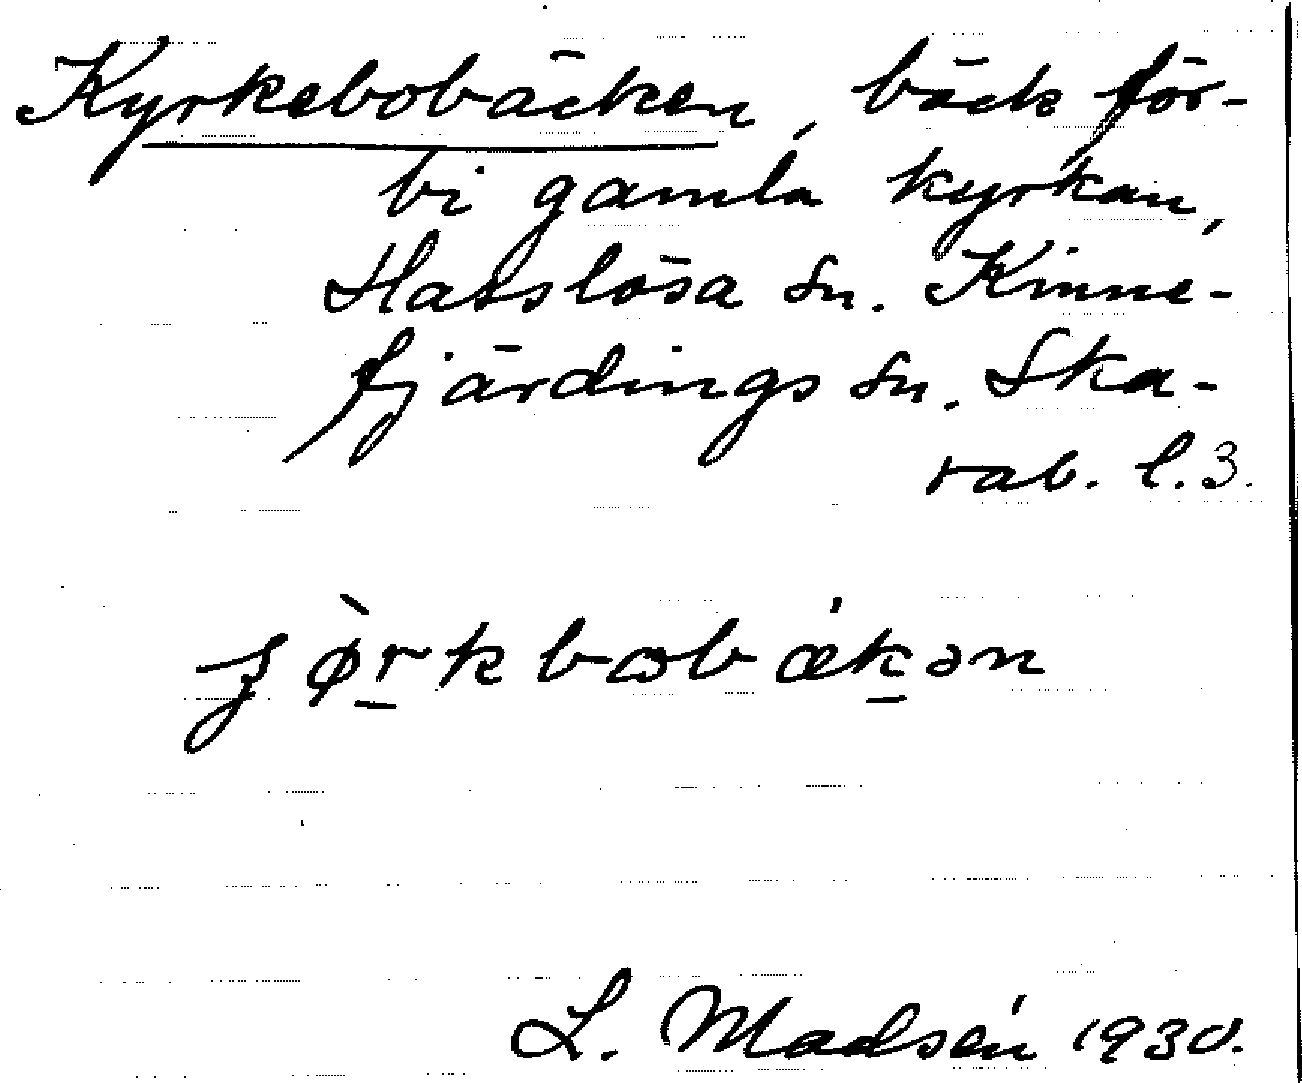 Kyrkebobäcken, bäck för-
bi gamla kyrkan,
Hasslösa sn. Kinne-
fjärdings sn. Ska-
rab. l. 3.
L. Madsén 1930.